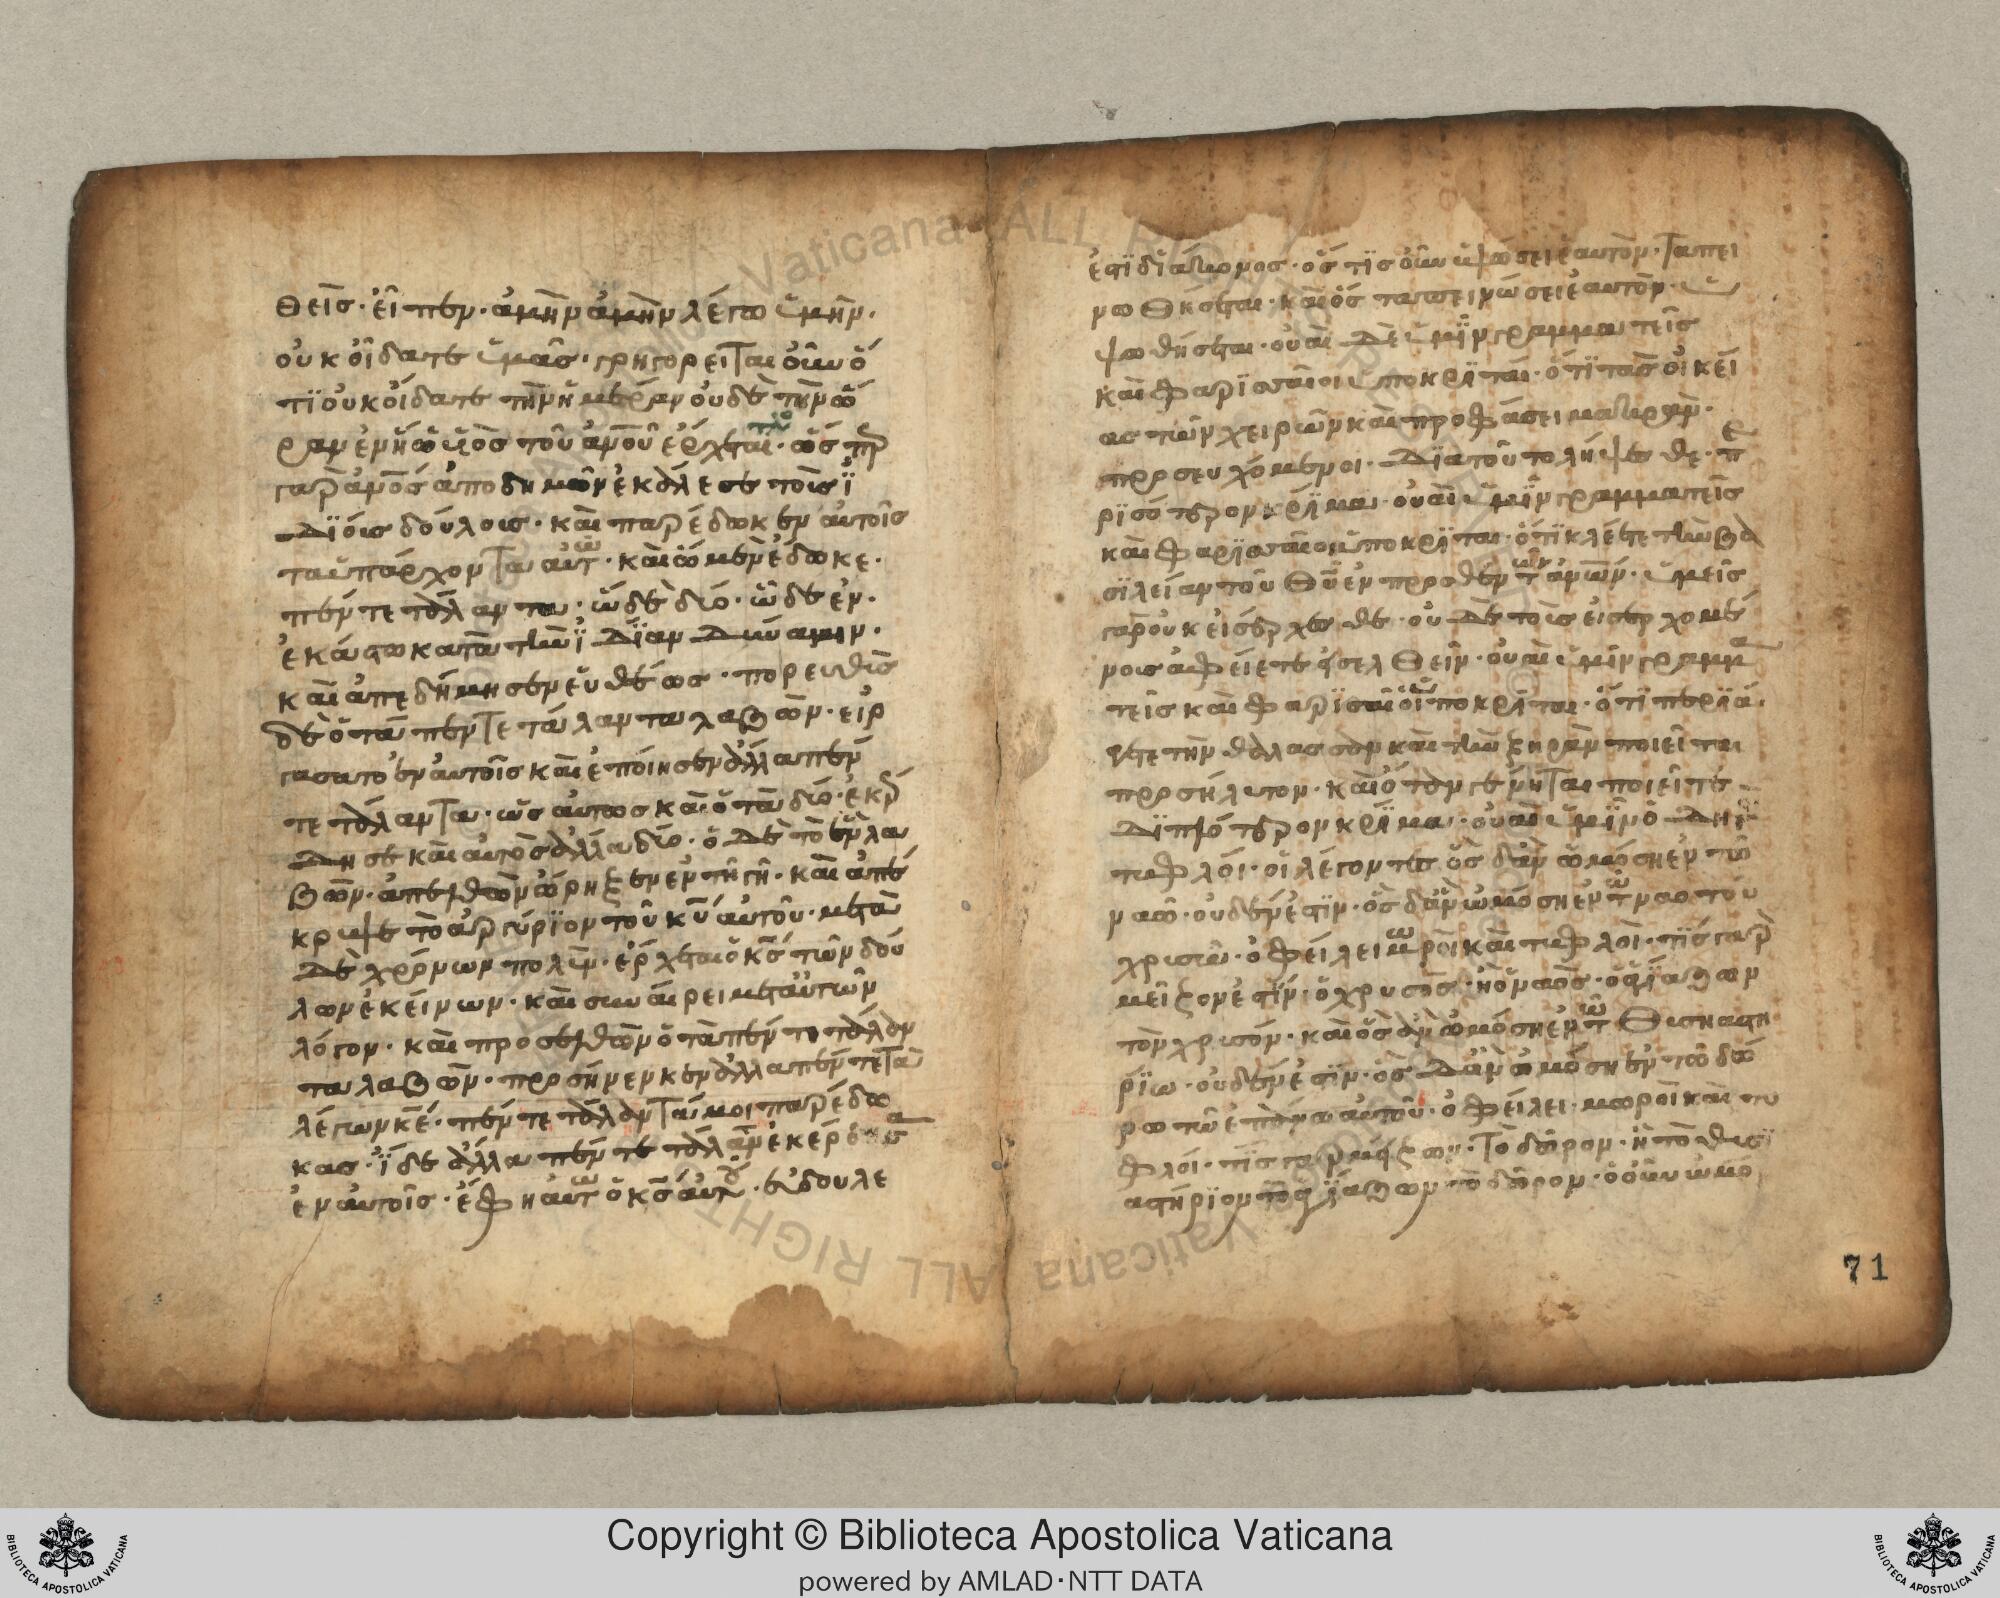 θεὶς· εἶπεν· ἀμὴν ἀμὴν λέγω ὑμὴν·
οὐκ οἶδατε ὑμᾶς· γρηγορεῖται οὖν ὅ
τϊ οὐκ οἴδατε τὴν ἡμέραν οὐδὲ τὴν ὥ
ραν ἐν ᾗ ὁ ὑϊὸς τοῦ ἀν̅ο̅υ̅ ἔρχεται· ὥσπερ
γὰρ ἀν̅ο̅ς̅ ἀποδημῶν ἐκάλεσε τοὺς ἰ
δϊόις δούλοις· καὶ παρέδωκεν αὐτοῖς
τὰ ὑπάρχοντα αὐτῶ· καὶ ὧ μὲν ἔδωκε·
πέντε τάλαντα· ὧ δὲ δύο· ὧ δὲ ἓν·
ἑκάστω κατὰ τὴν ἰδϊαν δύναμιν·
καὶ ἀπεδήμησεν εὐθέως· πορευθεὶς
δὲ ὁ τὰ πέντε τάλαντα λαβὼν· εἰρ
γάσατο ἐν αὐτοῖς καὶ ἐποίησεν ἄλλα πέν
τε τάλαντα· ὡσαύτως καὶ ὁ τὰ δύο· ἐκέρ
δησε καὶ αὐτὸς ἄλλα δύο· ὁ δὲ τὸ ἓν λα
βὼν· ἀπελθὼν ὤρηξεν ἐν τῆ γῆ· καὶ ἀπέ
κρυψε τὸ ἀργύριον τοῦ κ̅υ̅ αὐτοῦ· μετὰ
δὲ χρόνων πολὺν· ἔρχεται ὁ κ̅ς̅ τῶν δού
λων ἐκείνων· καὶ συναίρει μετ' αὐτῶν
λόγον· καὶ προσελθὼν ὁ τὰ πέντε τάλαν
τα λαβὼν· προσήνεγκεν ἄλλα πέντε τά
λέγων κ̅ε̅· πέντε τάλαντά μοι παρέδω
κας· ἴδε ἄλλα πέντε τάλαντα ἐκέρδησα
ἐν αὐτοῖς· ἔφη αὐτῶ ὁ κ̅ς̅ αὐτοῦ· εὖ δουλε
ἐστϊ διάκονος· ὅστϊς οὖν ὑψώσει ἑαυτὸν· ταπει
νωθήσεται· καὶ ὃς ταπεινώσει ἑαυτὸν· ὑ
ψωθήσεται· οὐαὶ δὲ ὑμῖν γραμματεῖς
καὶ φαρϊσαῖοι ὑποκρϊταί· ὅτϊ τὰς οἰκεί
ας τῶν χειρῶν καὶ προφάσει μακρὰν·
προσευχόμενοι· δϊὰ τοῦτο λήψεσθε· πε
ρϊσότερον κρίμα· οὐαὶ ὑμῖν γραμματεῖς
καὶ φαρϊσαῖοι ὑποκρϊται· ὅτϊ κλείετε τὴν βα
σϊλείαν τοῦ θ̅υ̅ ἔνπροσθεν τῶν ἀν̅ω̅ν̅· ὑμεῖς
γὰρ οὐκ εἰσέρχεσθε· οὐδὲ τοῖς εἰσερχομέ
νοις ἀφείετε εἰσελθεῖν· οὐαὶ ὑμῖν γραμμα
τεῖς καὶ φαρϊσαῖοι ὑποκρϊται· ὅτϊ περϊά
γετε τὴν θάλασσαν καὶ τὴν ξηρὰν ποιεῖται
προσήλυτον· καὶ ὅταν γένηται ποιεῖτε
δϊπλότερον κρίμα· οὐαὶ ὑμῖν ὁδηγ
τυφλόι· οἱ λέγοντες ὃς δὰν ὠμόση ἐν τῶ
ναῶ· οὐδέν ἐστϊν· ὃς δὰν ὠμόση ἐν τῶ ναο τοῦ
χρισῶ· ὀφείλει μωροὶ καὶ τυφλοὶ· τίς γὰρ
μεῖζον ἐστίν· ὁ χρυσὸς· ἢ ὁ ναὸς· ὁ ἁγιάζων
τὸν χρισόν· καὶ ὃς ἂν ὠμόση ἐν τῶ θισηαστη
ρϊω· οὐδέν ἐστϊν· ὃς δἂν ὠμόση ἐν τῶ δώ
ρω τῶ ἐπάνω αὐτοῦ· ὀφείλει· μωροὶ καὶ τυ
φλόι· τίς γὰρ μεῖζων· τὸ δῶρον· ἢ τὸ θυσϊ
αστήρϊον τὸ ἁγιάζων τὸ δῶρον· ὁ οὖν ὠμό
71
Copyright © Biblioteca Apostolica Vaticana
powered by AMLAD·NTT DATA